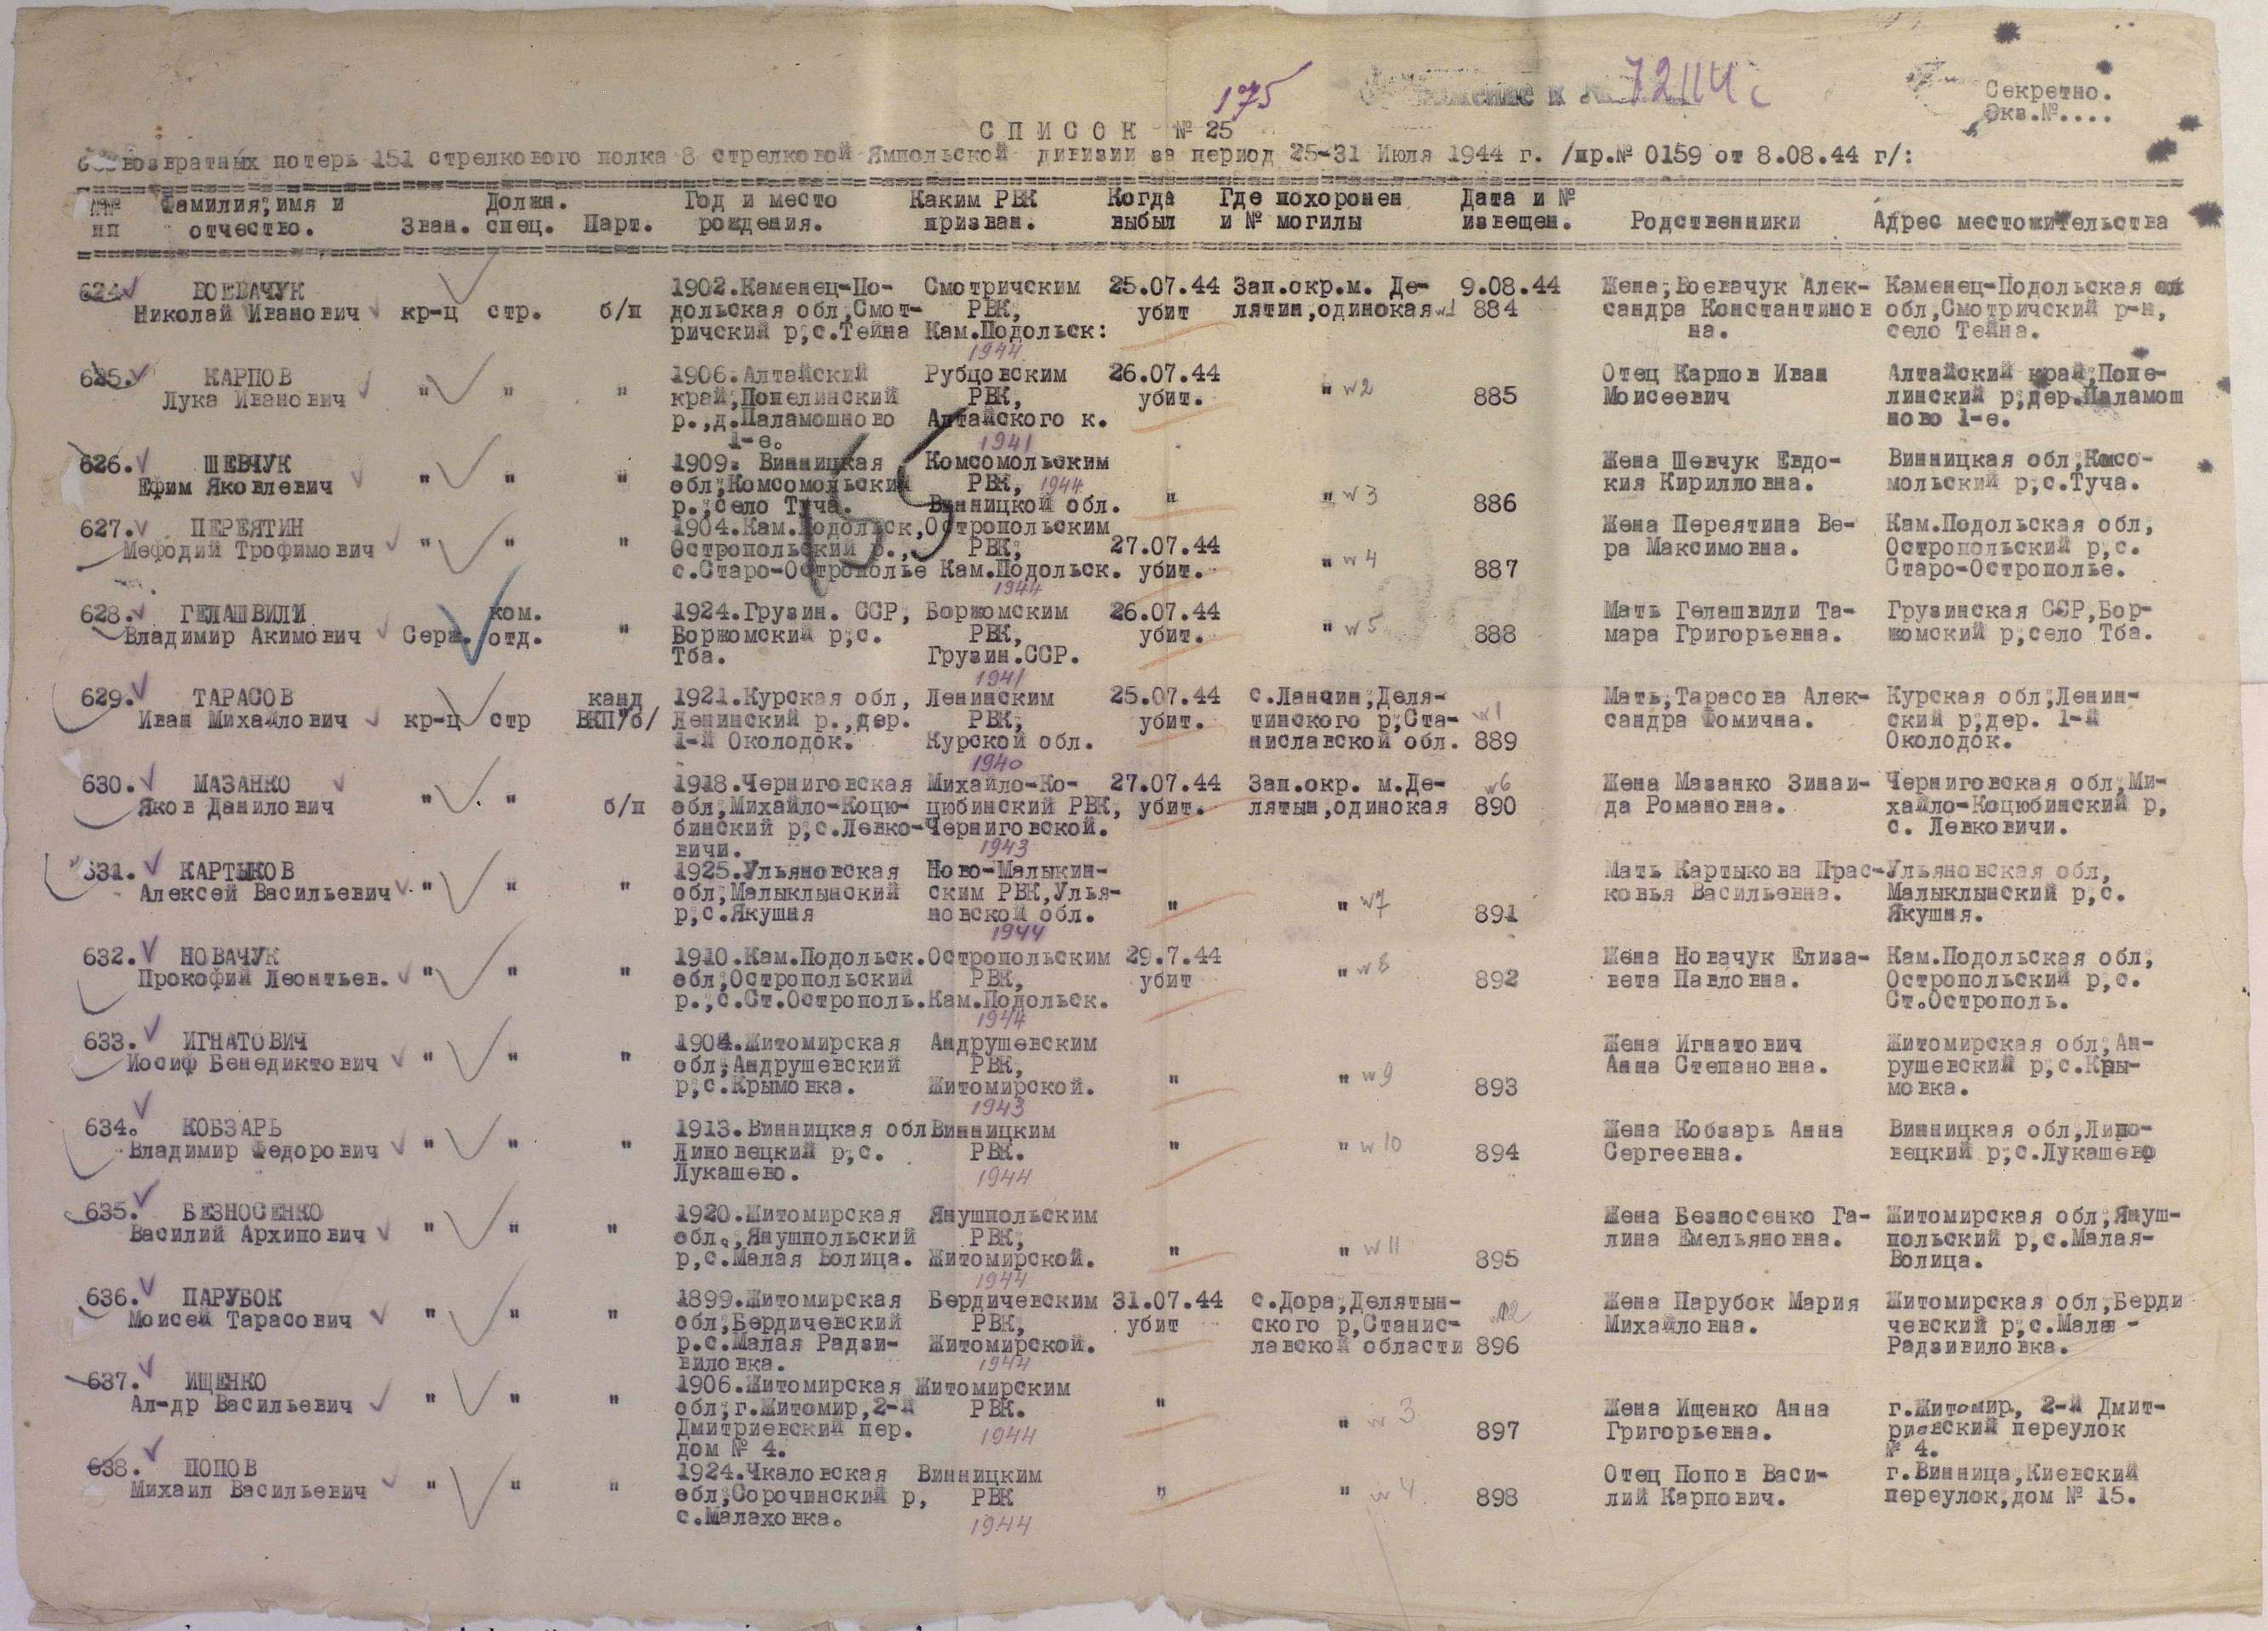 175
к № 72114с
Секретно.
Экз.№....
СПИСОК № 25
безвозвратных потерь 151 стрелкового полка 8 стрелковой Ямпольской дивизии за период 25-31 Июля 1944 г. /пр.№ 0159 от 8.08.44 г/:
№№ Фамилия,имя и Должн. Год и место Каким РВК Когда Где похоронен Дата и №
пп отчество. Зван. спец. Парт. рождения. призван. выбыл и № могилы извещен. Родственники Адрес местожительства
624. БОЕВАЧУК 1902.Каменец-По- Смотричским 25.07.44 Зап.окр.м. Де- 9.08.44 Жена,Боевачук Алек- Каменец-Подольская
Николай Иванович кр-ц стр. б/п дольская обл,Смот- РВК, убит лятин,одинокая №1 884 сандра Константинов обл,Смотричский р-н,
ричский р,с.Тейна Кам.Подольск: на. село Тейна.
1944
625. КАРПОВ 1906.Алтайский Рубцовским 26.07.44 Отец Карпов Иван Алтайский край,Попе-
Лука Иванович " " " край,Попелинский РВК, убит. " №2 885 Моисеевич линский р,дер.Паламош
р.,д.Паламошново Алтайского к. ново 1-е.
1-е. 1941
626. ШЕВЧУК 1909. Винницкая Комсомольским Жена Шевчук Евдо- Винницкая обл,Комсо-
Ефим Яковлевич " " " обл,Комсомольский РВК, 1944 кия Кирилловна. мольский р,с.Туча.
р.,село Туча. Винницкой обл. " " №3 886
627. ПЕРЕЯТИН 1904.Кам.Подольск,Остропольским Жена Переятина Ве- Кам.Подольская обл,
Мефодий Трофимович " " " Остропольский р., РВК, 27.07.44 ра Максимовна. Остропольский р,с.
с.Старо-Острополье Кам.Подольск. убит. " №4 887 Старо-Острополье.
1944
628. ГЕЛАШВИЛИ ком. 1924.Грузин. ССР, Боржомским 26.07.44 Мать Гелашвили Та- Грузинская ССР,Бор-
Владимир Акимович Серж. отд. " Боржомский р,с. РВК, убит. " №5 888 мара Григорьевна. жомский р,село Тба.
Тба. Грузин.ССР.
1941
629. ТАРАСОВ канд 1921.Курская обл, Ленинским 25.07.44 с.Ланчин,Деля- Мать,Тарасова Алек- Курская обл,Ленин-
Иван Михайлович кр-ц стр ВКП/б/ Ленинский р.,дер. РВК, убит. тинского р,Ста- №1 сандра Фомична. ский р,дер. 1-й
1-й Околодок. Курской обл. ниславской обл. 889 Околодок.
1940
630. МАЗАНКО 1918.Черниговская Михайло-Ко- 27.07.44 Зап.окр. м.Де- №6 Жена Мазанко Зинаи- Черниговская обл,Ми-
Яков Данилович " " б/п обл,Михайло-Коцю- цюбинский РВК, убит. лятын,одинокая 890 да Романовна. хайло-Коцюбинский р,
бинский р,с.Левко-Черниговской. с. Левковичи.
вичи. 1943
631. КАРТЫКОВ 1925.Ульяновская Ново-Малыкин- Мать Картыкова Прас-Ульяновская обл,
Алексей Васильевич " " " обл,Малыклынский ским РВК,Улья- ковья Васильевна. Малыклынский р,с.
р,с.Якушня новской обл. " " №7 891 Якушня.
1944
632. НОВАЧУК 1910.Кам.Подольск.Остропольским 29.7.44 Жена Новачук Елиза- Кам.Подольская обл,
Прокофий Леонтьев. " " " обл,Остропольский РВК, убит " №8 892 вета Павловна. Остропольский р,с.
р.,с.Ст.Острополь.Кам.Подольск. Ст.Острополь.
1944
633. ИГНАТОВИЧ 1904.Житомирская Андрушевским Жена Игнатович Житомирская обл,Ан-
Иосиф Бенедиктович " " " обл,Андрушевский РВК, Анна Степановна. рушевский р,с.Кры-
р,с.Крымовка. Житомирской. " " №9 893 мовка.
1943
634. КОБЗАРЬ 1913.Винницкая обл Винницким Жена Кобзарь Анна Винницкая обл,Липо-
Владимир Федорович " " " Липовецкий р,с. РВК. " " №10 894 Сергеевна. вецкий р,с.Лукашево
Лукашево. 1944
635. БЕЗНОСЕНКО 1920.Житомирская Янушпольским Жена Безносенко Га- Житомирская обл,Януш-
Василий Архипович " " " обл.,Янушпольский РВК, лина Емельяновна. польский р,с.Малая-
р,с.Малая Волица. Житомирской. " " №11 895 Волица.
1944
636. ПАРУБОК 1899.Житомирская Бердичевским 31.07.44 с.Дора,Делятын- Жена Парубок Мария Житомирская обл,Берди
Моисей Тарасович " " " обл,Бердичевский РВК, убит ского р,Станис- №2 Михайловна. чевский р,с.Малая -
р.с.Малая Радзи- Житомирской. лавской области 896 Радзивиловка.
виловка. 1944
637. ИЩЕНКО 1906.Житомирская Житомирским
Ал-др Васильевич " " " обл,г.Житомир,2-й РВК. " Жена Ищенко Анна г.Житомир, 2-й Дмит-
Дмитриевский пер. 1944 " №3 897 Григорьевна. риевский переулок
дом № 4. № 4.
638. ПОПОВ 1924.Чкаловская Винницким Отец Попов Васи- г.Винница,Киевский
Михаил Васильевич " " " обл,Сорочинский р, РВК " " №4 898 лий Карпович. переулок,дом № 15.
с.Малаховка. 1944